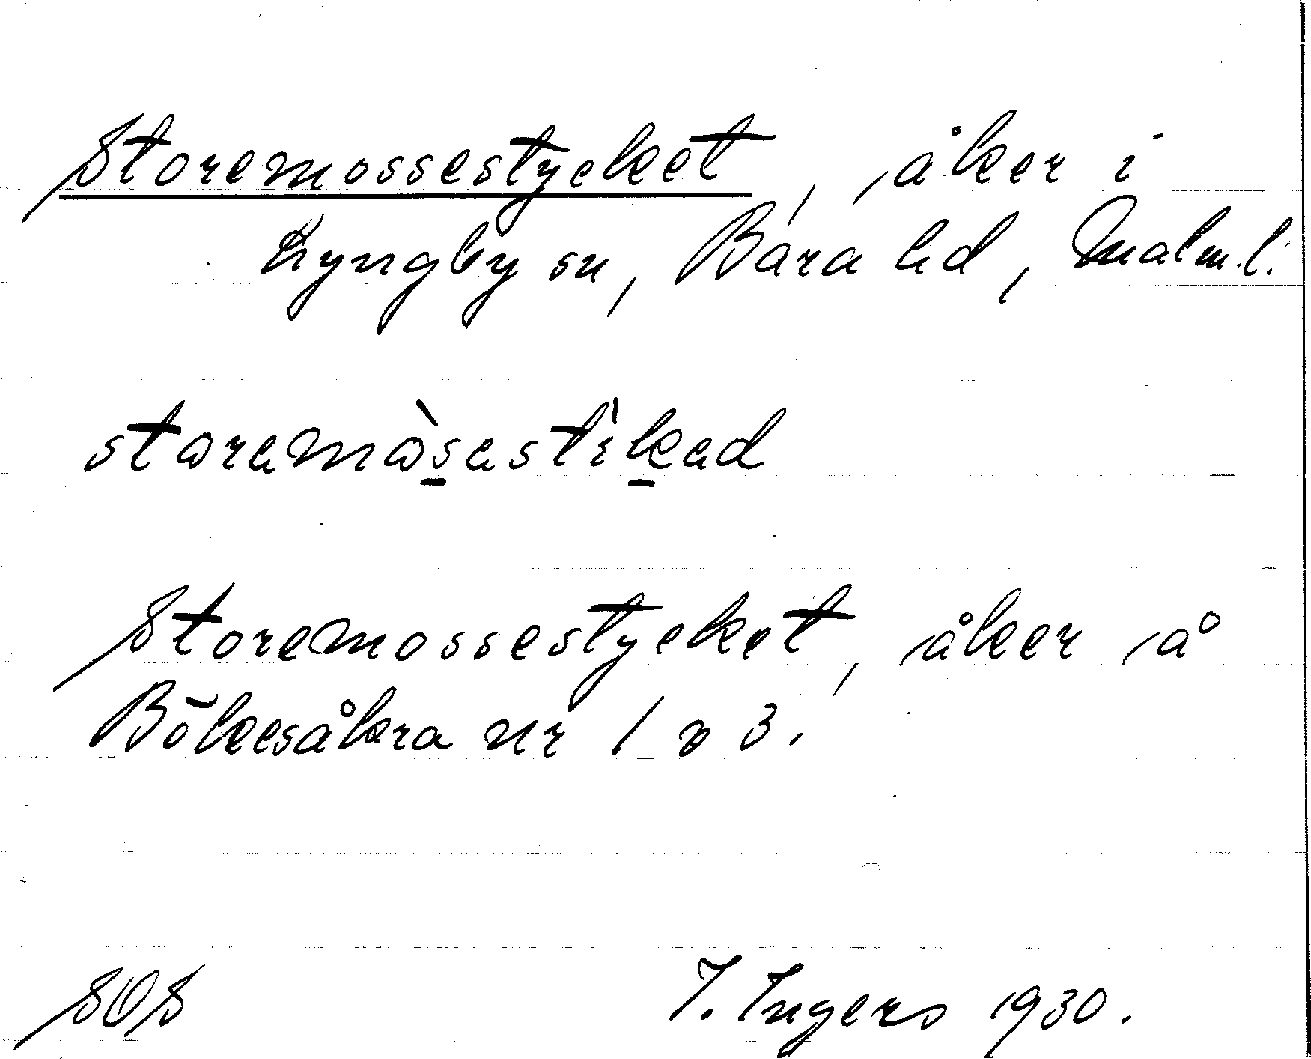 Storemossestycket, åker i
Lyngby sn, Bara hd, Malm.l.
storemòsestìked
Storemossestycket, åker å
Bökesåkra nr 1 o 3.
SOS
I. Ingers 1930.